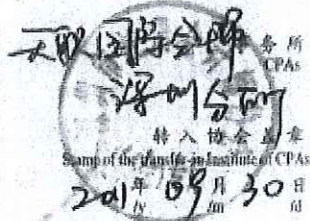 天职国际会计师事务所
CPAs
深圳分所
转入协会盖章
Stamp of the transfer-in Institute of CPAs
2011年09月30日
/y /m /d